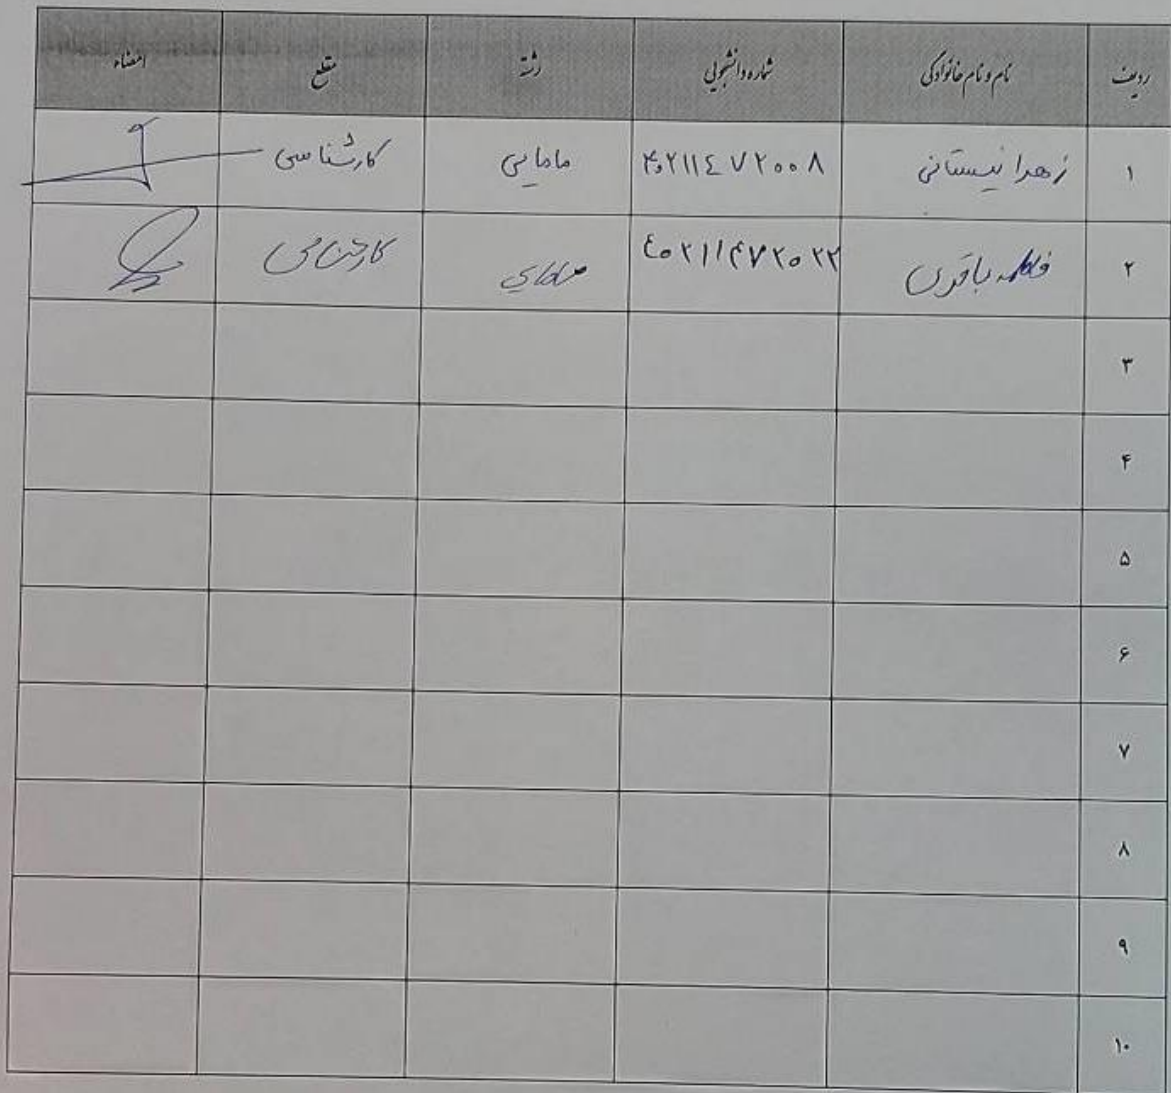 ردیف نام و نام خانوادگی شماره دانشجویی رشته مقطع امضاء
۱ زهرا نیستانی ۴۰۲۱۱۴۷۲۰۰۸ مامایی کارشناسی
۲ فاطمه باقری ۴۰۲۱۱۴۷۲۰۲۲ مامایی کارشناسی
۳
۴
۵
۶
۷
۸
۹
۱۰